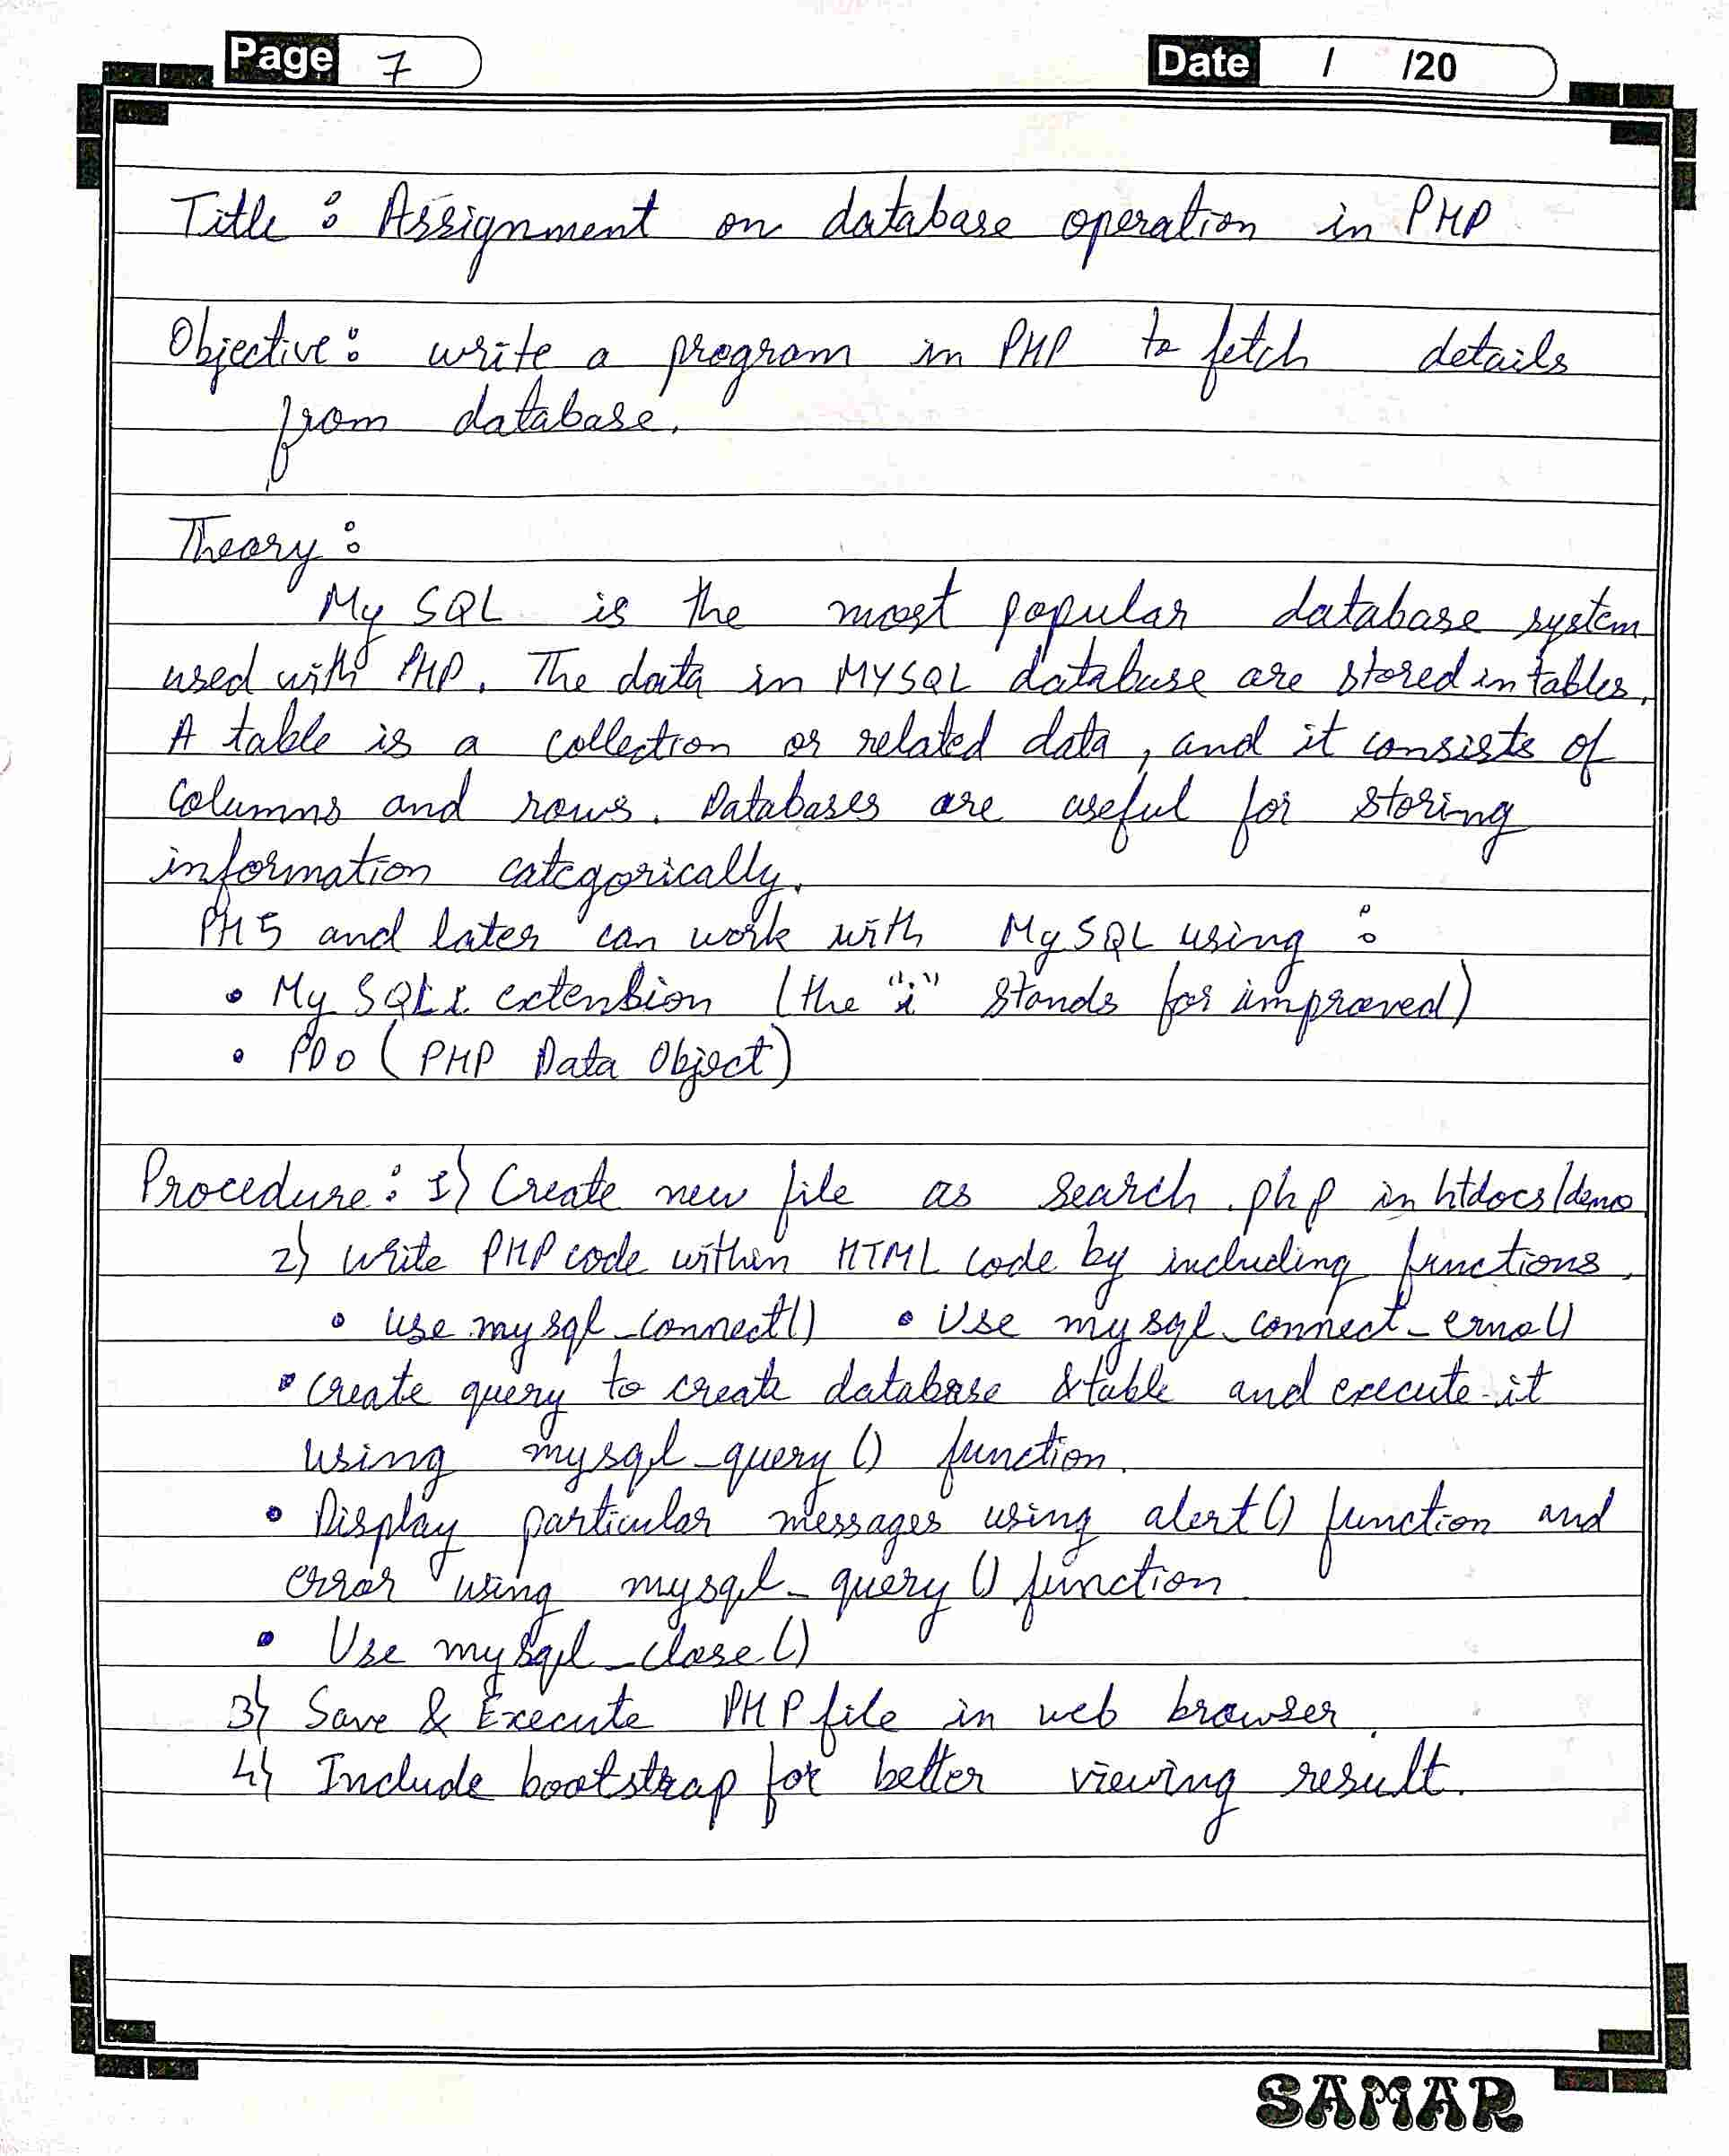 Page 7
Date / /20
Title : Assignment on database operation in PHP
Objective : write a program in PHP to fetch details
from database.
Theory :
My SQL is the most popular database system
used with PHP. The data in MYSQL database are stored in tables.
A table is a collection or related data, and it consists of
columns and rows. Databases are useful for storing
information categorically.
PH5 and later can work with MySQL using :
• My SQLi extension (the "i" stands for improved)
• PDO (PHP Data Object)
Procedure : 1) Create new file as search.php in htdocs/demo
2) Write PHP code within HTML code by including functions.
• use mysql_connect() • Use mysql_connect_erno()
• create query to create database & table and execute it
using mysql_query() function.
• Display particular messages using alert() function and
error using mysql_query() function.
• Use mysql_close()
3) Save & Execute PHP file in web browser.
4) Include bootstrap for better viewing result.
SAMAR